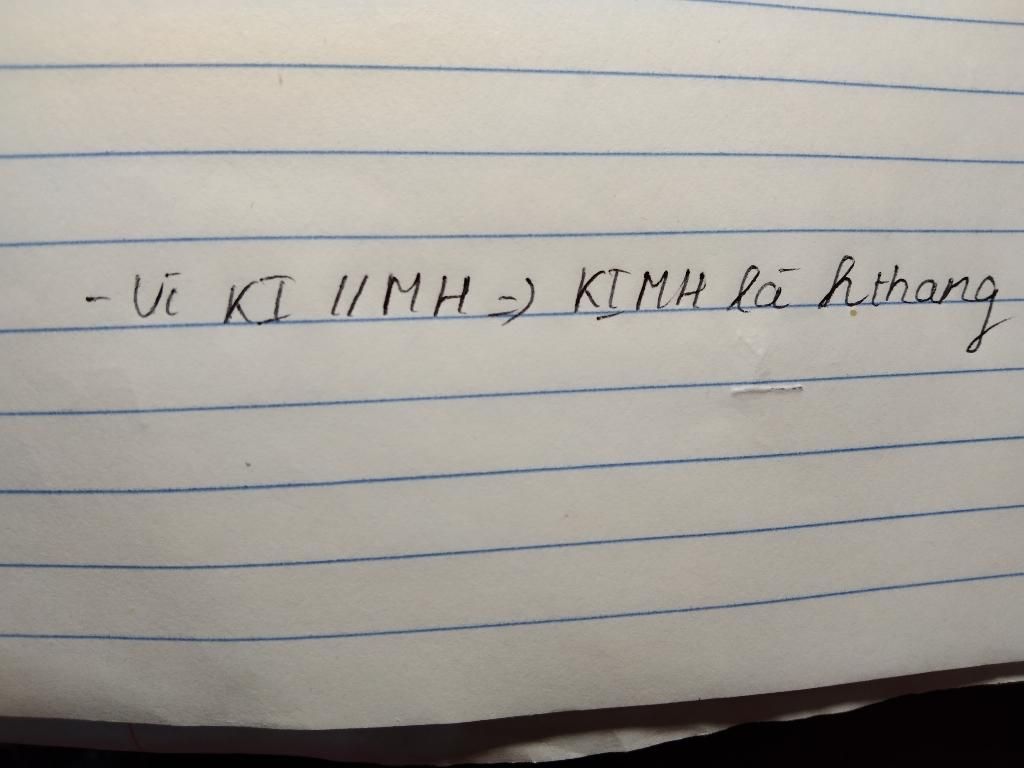 - Vì KI // MH => KIMH là hthang